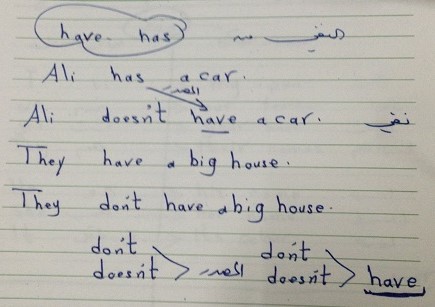 have has
Ali has a car.
Ali doesn't have a car. نفي
They have a big house.
They don't have a big house.
don't don't
doesn't doesn't have